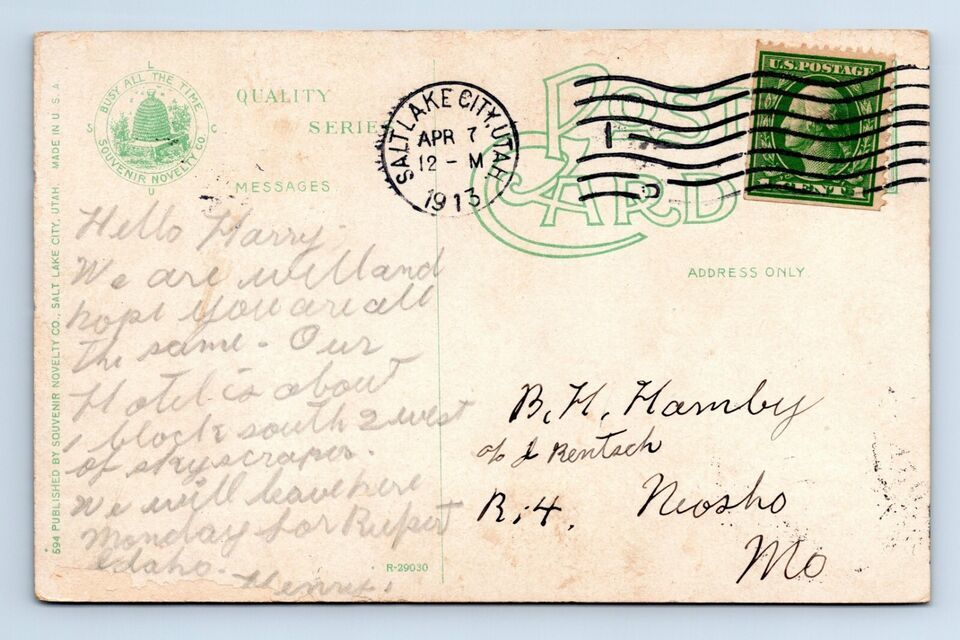 L
BUSY ALL THE TIME
S C
SOUVENIR NOVELTY CO.
U
QUALITY
SERIES
MESSAGES
POST
CARD
ADDRESS ONLY
SALT LAKE CITY, UTAH
APR 7
12 - M
1913
U.S. POSTAGE
1 CENT 1
594 PUBLISHED BY SOUVENIR NOVELTY CO., SALT LAKE CITY, UTAH. MADE IN U.S.A.
R-29030
Hello Harry-
We are well and
hope you are all
the same. Our
Hotel is about
1 block south 2 west
of skyscraper.
We will leave here
Monday for Rupert
Idaho.
Henry.
B. H. Hamby
c/o J Rentsch
R. 4. Neosho
Mo